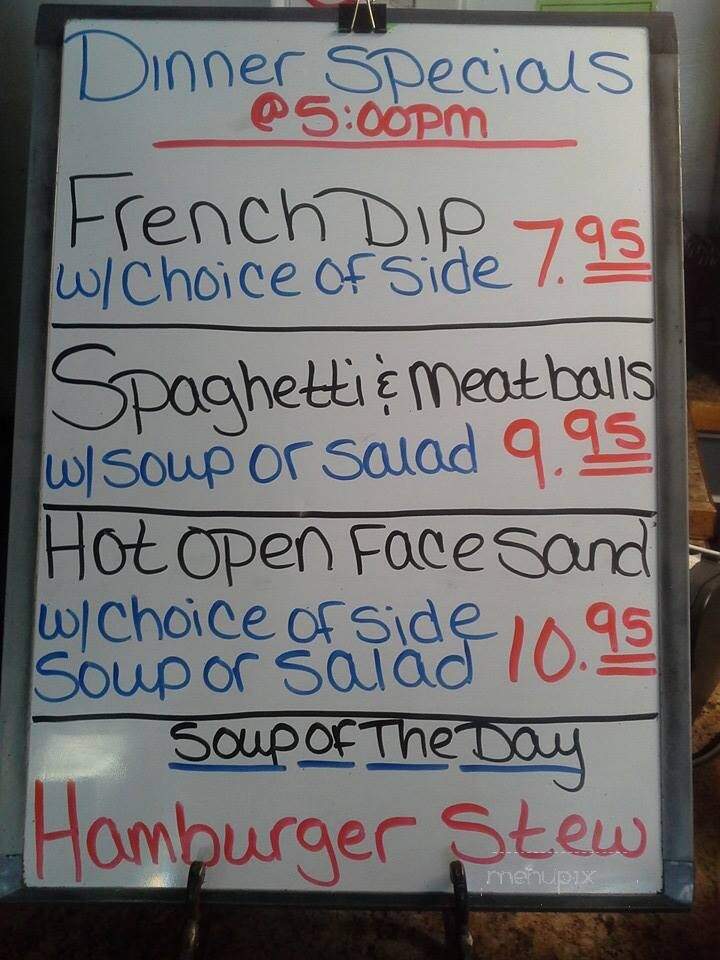 Dinner Specials
@5:00pm
French Dip
w/Choice of Side 7.95
Spaghetti & Meatballs
w/Soup or Salad 9.95
Hot Open Face Sand
w/Choice of Side
Soup or Salad 10.95
Soup of The Day
Hamburger Stew
menupix